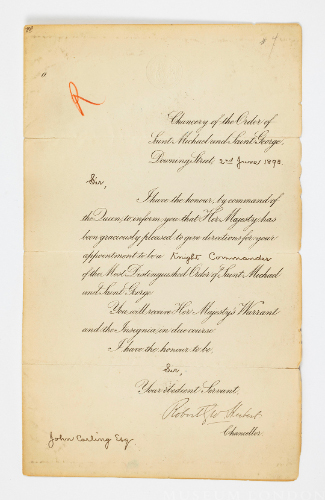 R
Chancery of the Order of
Saint Michael and Saint George,
Downing Street, 2nd June 1893.
Sir,
I have the honour, by command of
the Queen, to inform you that Her Majesty has
been graciously pleased to give directions for your
appointment to be a Knight Commander
of the Most Distinguished Order of Saint Michael
and Saint George.
You will receive Her Majesty's Warrant
and the Insignia in due course.
I have the honour to be,
Sir,
Your obedient Servant,
Robert G W Herbert
Chancellor.
John Carling Esq.